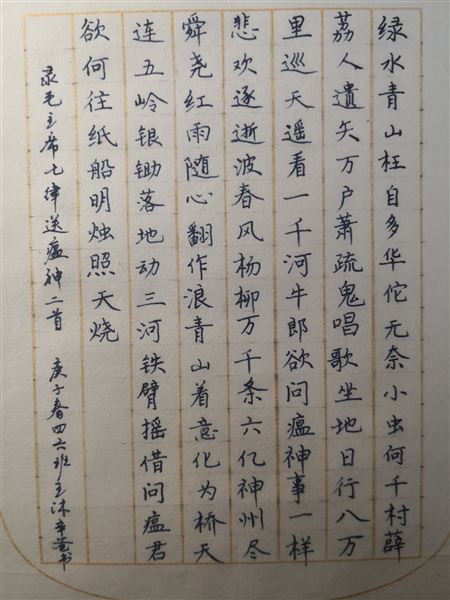 绿水青山枉自多华佗无奈小虫何千村薜
荔人遗矢万户萧疏鬼唱歌坐地日行八万
里巡天遥看一千河牛郎欲问瘟神事一样
悲欢逐逝波春风杨柳万千条六亿神州尽
舜尧红雨随心翻作浪青山着意化为桥天
连五岭银锄落地动三河铁臂摇借问瘟君
欲何往纸船明烛照天烧
录毛主席七律送瘟神二首 庚子春四六班王沐辛爸书